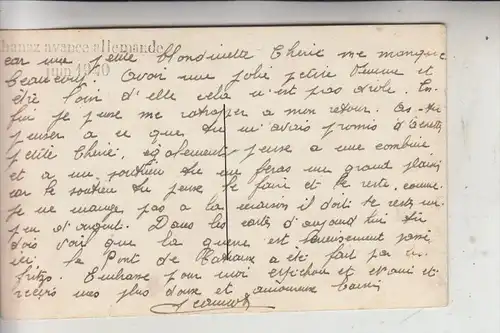 avance allemande
juin 1940
car une petite blondinette Cherie me manque
beaucoup. Avoir une jolie petite femme et
être loin d'elle cela n'est pas drole. En-
fin je pense me rattraper a mon retour. As-tu
penser a ce que tu m'avais promis d'acheter
petite Cherie, également pense a une combine
et a un soutien tu me feras un grand plaisir
car le soutien tu peux le faire et le reste, comme
je ne mange pas a la maison il doit te rester un
peu d'argent. Dans les cartes d'aujourd'hui tu
dois voir que la guerre est passé
ici. le Pont de a été fait par les
fritz. Embrasse pour moi et
reçois mes plus doux et amoureux baisers